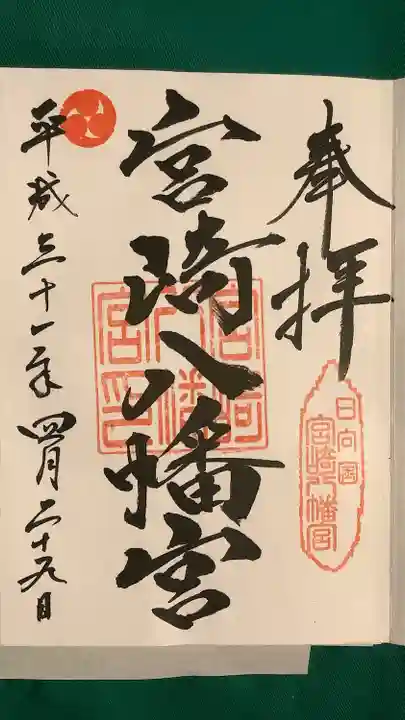 奉拝
日向国
宮崎八幡宮
宮崎八幡宮
宮崎八幡宮印
平成三十一年四月二十九日